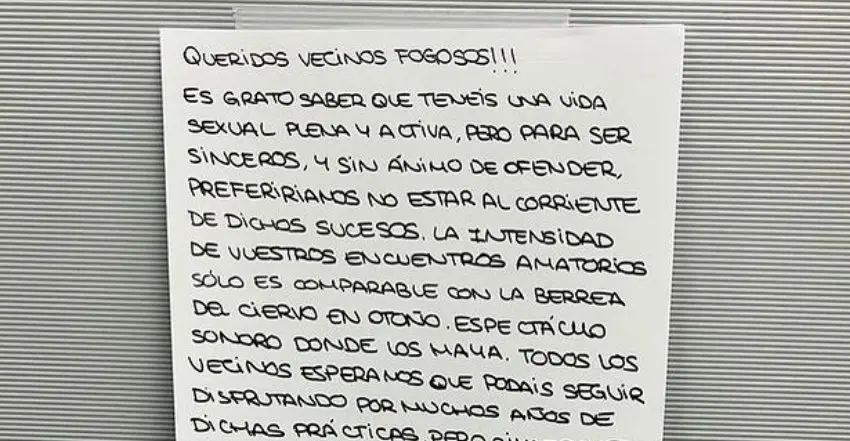 QUERIDOS VECINOS FOGOSOS!!!
ES GRATO SABER QUE TENEIS UNA VIDA
SEXUAL PLENA Y ACTIVA, PERO PARA SER
SINCEROS, Y SIN ÁNIMO DE OFENDER,
PREFERIRIAMOS NO ESTAR AL CORRIENTE
DE DICHOS SUCESOS. LA INTENSIDAD
DE VUESTROS ENCUENTROS AMATORIOS
SÓLO ES COMPARABLE CON LA BERREA
DEL CIERVO EN OTOÑO. ESPECTÁCULO
SONORO DONDE LOS HAYA. TODOS LOS
VECINOS ESPERAMOS QUE PODAIS SEGUIR
DISFRUTANDO POR MUCHOS AÑOS DE
DICHAS PRÁCTICAS PERO